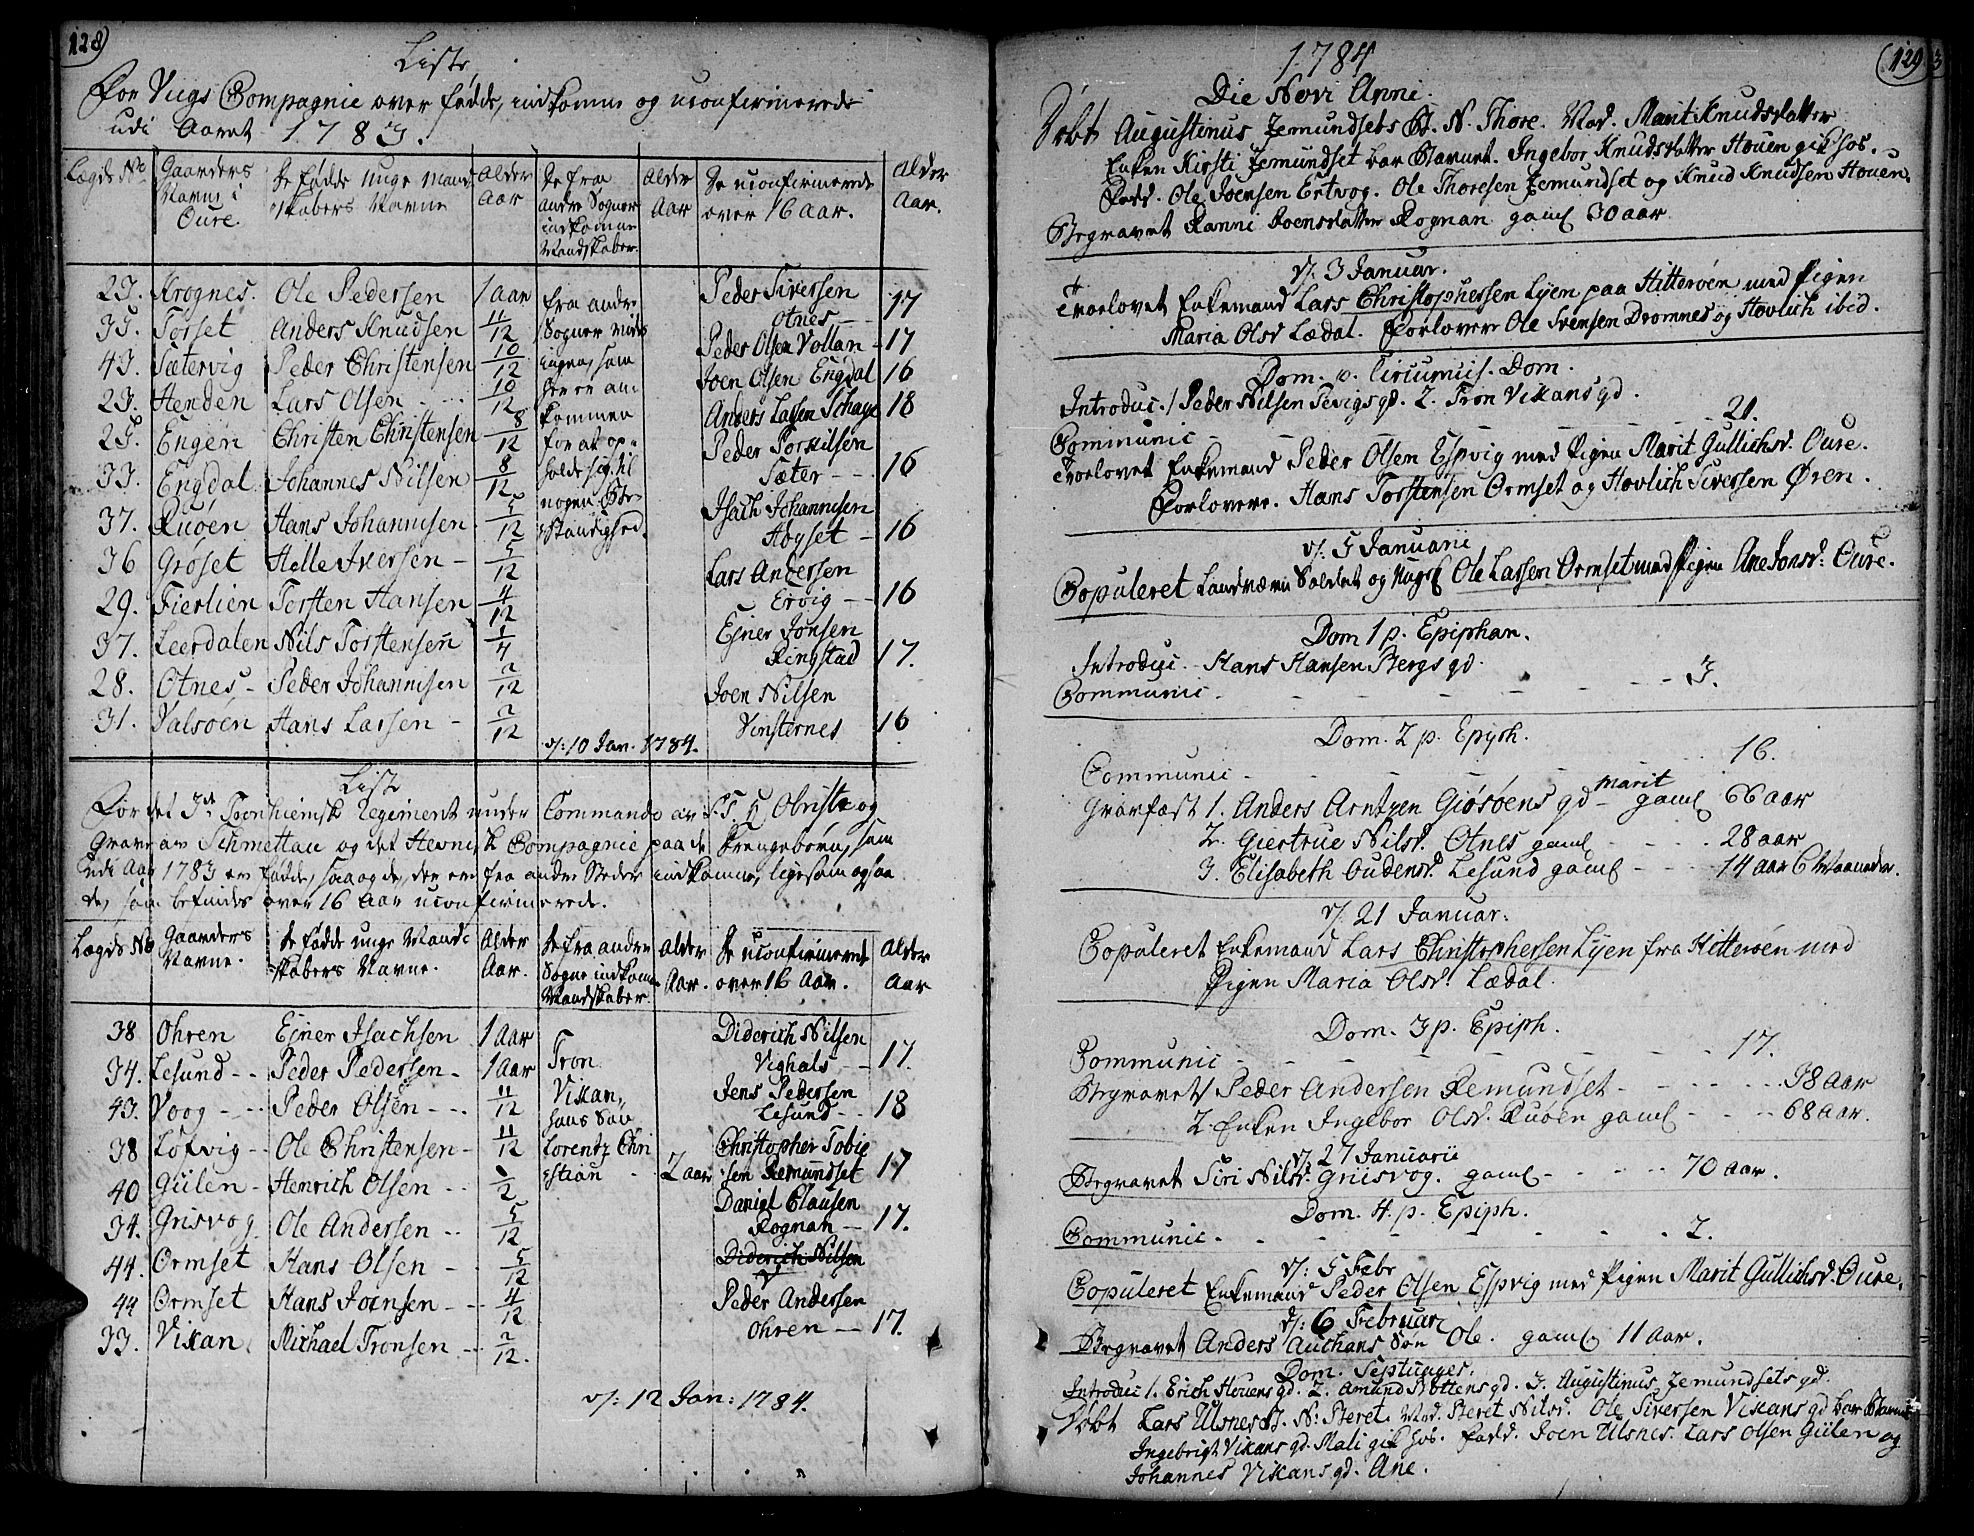 128)
Liste
For Viigs Compagnie over fødde, indkomne og uconfirmerede
udi Aaret 1783.
Lægds No | Gaardens Navne i Oure | De fødde unge Mandskabers Navne | Alder Aar | De fra andre Sogner indkomne Mandskaber | Alder Aar | De uconfirmerede over 16 Aar. | Alder Aar.
23. Krognes. Ole Pedersen 1 Aar
35. Torset Anders Knudsen 11/12
43. Sætervig Peder Christensen 10/12
23. Henden Lars Olsen 10/12
25. Engen Christen Christensen 8/12
33. Engdal Johannes Nilsen 8/12
37. Ruöen Hans Johannisen 5/12
36 Grøset Helle Iversen 5/12
29. Fierlien Torsten Hansen 4/12
37. Leerdalen Nils Torstensen 1/4
28. Otnes Peder Johannisen 2/12
31. Valsöen Hans Larsen 2/12
fra andre
Sogner
ingen, som
her er an
kommen
for at op=
holde sig til
nogen Be=
standighed.
Peder Siversen
Otnes 17
Peder Olsen Vollan 17
Joen Olsen Engdal 16
Anders Lassen Schage 18
Peder Torkilsen
Sæter 16
Isach Johannisen
Høyset 16
Lars Andersen
Ervig 16
Ejner Jonsen
Ringstad 17.
Joen Nilsen
Vinsternes 16
d: 10 Jan. 1784.
Liste
For det 3de Tronhiemsk Regiment under Commando av S. T. H Obriste og
Grave av Schmettau og det Hevnisk Compagnie paa de Drengebørn, som
udi Aar 1783 ere fødde, saa og de, der ere fra andre Steder indkomne, ligesom ogsaa
de, som befindes over 16 Aar uconfirmerede.
Lægds No | Gaardens Navne. | De fødde unge Mandskabers Navne. | Alder Aar. | De fra andre Sogne indkomne Mandskaber. | Alder Aar. | De uconfirmerede over 16 Aar. | Alder Aar
38 Ohren Ejner Isachsen 1 Aar
34. Lesund Peder Pedersen 1 Aar
43. Voog Peder Olsen 11/12
38 Lofvig Ole Christensen 11/12
40 Gülen Henrich Olsen 1/2
34. Grisvog Ole Andersen 5/12
44. Ormset Hans Olsen 5/12
44 Ormset Hans Joensen 4/12
33. Vikan Michael Tronsen 2/12.
Tron
Vikan,
hans Søn
Lorentz Chri
stian 2 aar
Diderich Nilsen
Vighals 17.
Jens Pedersen
Lesund 18
Christopher Tobie
sen Remundset 17
Daniel Clausen
Rognan 17.
Diderich Nilsen
Peder Andersen
Ohren 17.
d: 12 Jan: 1784.
(129
1784
Die Novi Anni.
Døbt Augustinus Jemundsets B. N. Thore. Mod. Marit Knudsdatter
Enken Kirsti Jemundset bar Barnet. Ingebor Knudsdatter Houen gik hos.
Fadd. Ole Joensen Ertvog. Ole Thoresen Jemundset og Knud Knudsen Houen.
Begravet Ranni Joensdatter Rognan gaml 30 aar
d. 3 Januar.
Trorlovet Enkemand Lars Christophersen Lyen paa Hitterøen med Pigen
Maria Olsd Lædal. Forlovere Ole Svensen Dromnes og Hovlich ibid.
Dom. p. Circumcis. Dom.
Introduc. 1 Peder Nilsen Sevigs qd. 2. Tron Vikans qd.
Communic 21.
Trorlovet Enkemand Peder Olsen Espvig med Pigen Marit Gullichsd. Oure.
Forlovere. Hans Torstensen Ormset og Hovlich Siversen Øren.
d: 5 Januarii
Copuleret Landværn Soldat og Ungk Ole Larsen Ormset med Pigen Ane Jonsd: Oure.
Dom 1 p. Epiphan.
Introduc. Hans Hansen Bergs qd.
Communic 3.
Dom. 2 p. Epiph.
Communic 16.
Gravfæst 1. Anders Arntzen Giøsøens qd Marit gaml 66 aar
2. Giertrue Nilsd. Otnes gaml 28 aar
3. Elisabeth Oudensd. Lesund gaml 14 aar 6 Maaneder.
d. 21 Januar:
Copuleret Enkemand Lars Christophersen Lyen fra Hitterøen med
Pigen Maria Olsd. Lædal.
Dom. 3 p. Epiph.
Communic 17.
Begravet 1 Peder Andersen Remundset 38 aar
2. Enken Ingebor Olsd. Ruöen gaml 68 aar.
d. 27 Januarii
Begravet Siri Nilsd. Griisvog. gaml 70 aar.
Dom. 4. p. Epiph.
Communic 2.
d: 5 Febr
Copuleret Enkemand Peder Olsen Espvig med Pigen Marit Gullichsd. Oure.
d: 6 Februar
Begravet Anders Auchans Søn Ole. gaml 11 aar.
Dom. Septuages.
Introduc 1. Erich Houens qd. 2. Amund Nottens qd. 3. Augustinus Jemundsets qd.
Døbt Lars Ulsnes B. N: Beret. Mod. Beret Nilsd. Ole Siversen Vikans qd bar Barnet
Ingebrigt Vikans qd. Mali gik hos. Fadd. Joen Ulsnes. Lars Olsen Gülen og
Johannes Vikans qd. Ane.